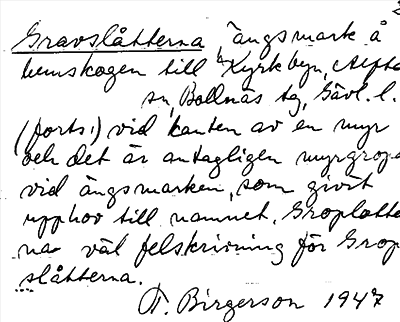 Gravslåtterna ängsmark å
hemskogen till Kyrkbyn, Alfta
sn, Bollnäs tg, Gävl. l.
(forts.) vid kanten av en myr
och det är antagligen myrgropar
vid ängsmarken, som givit
upphov till namnet. Groplotter
na väl felskrivning för Grop
slåtterna.
T. Birgerson 1947